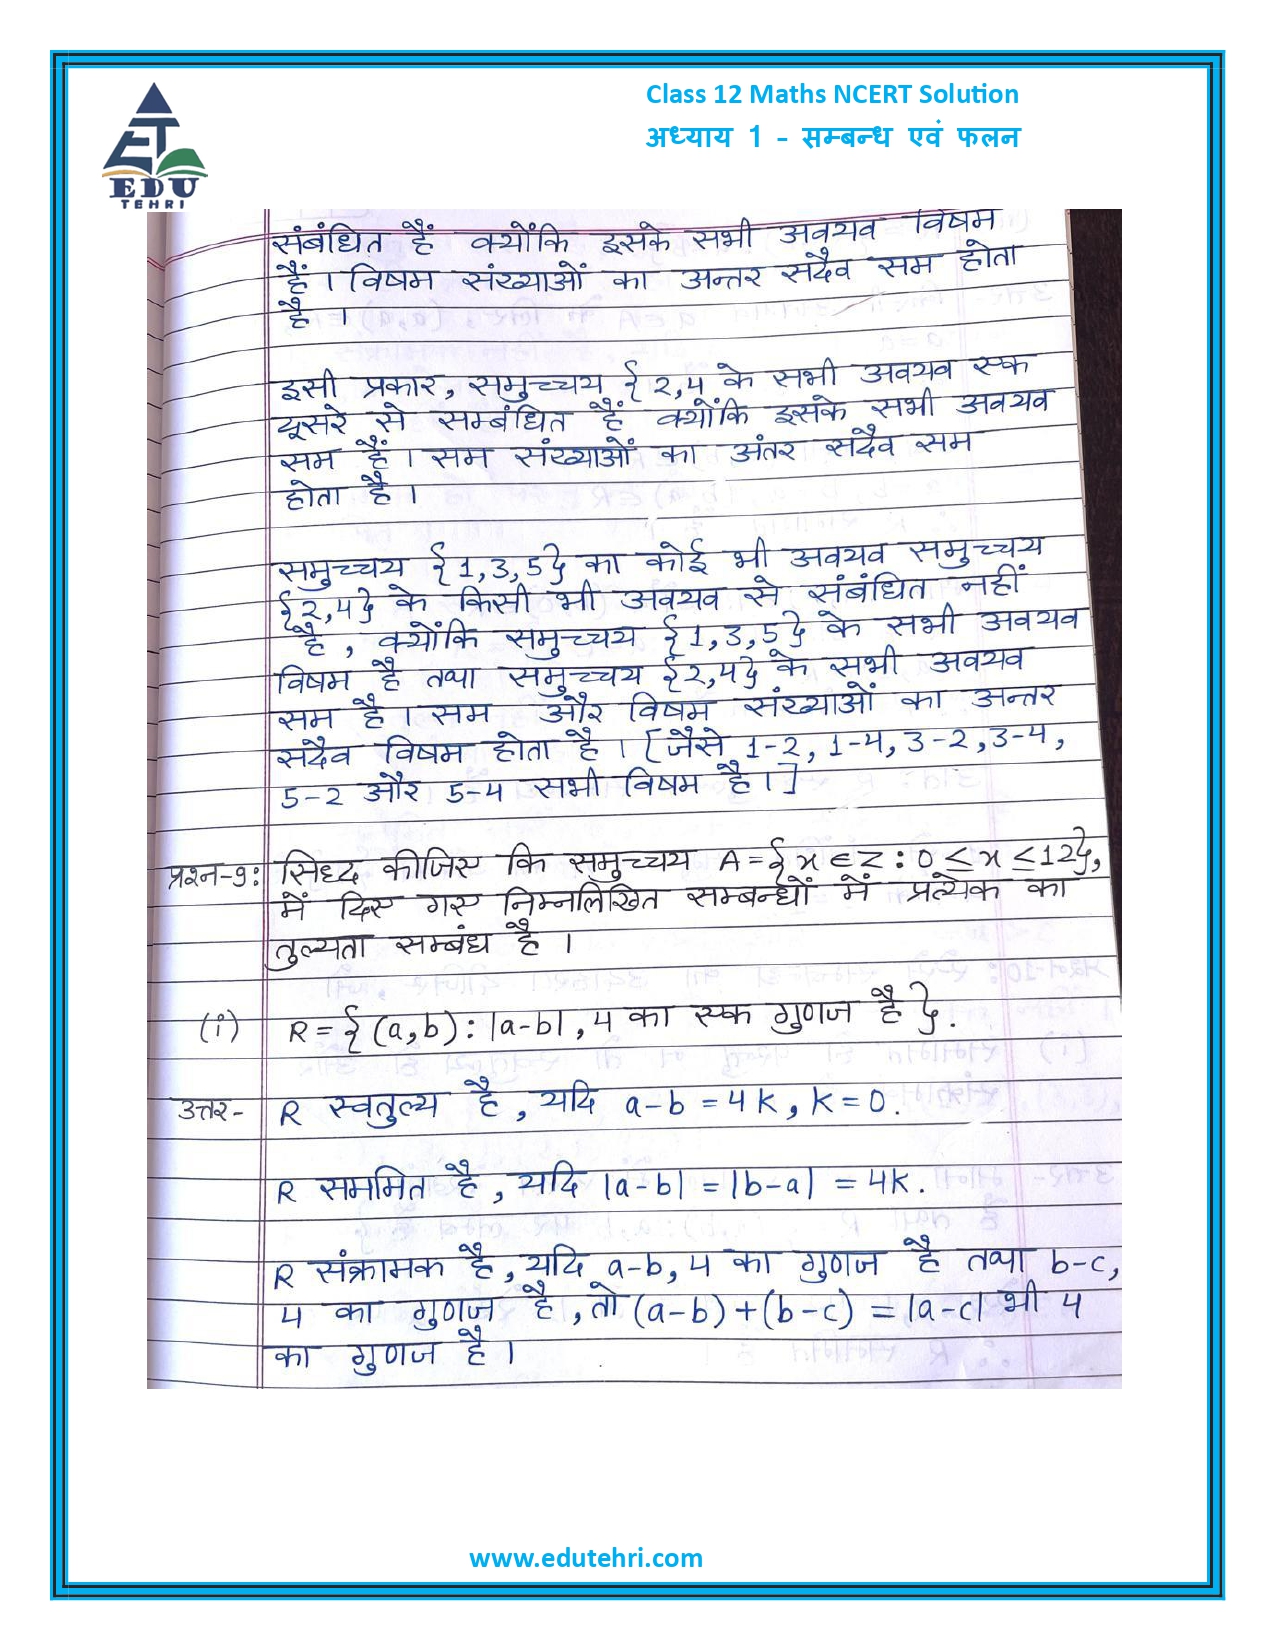 Class 12 Maths NCERT Solution
अध्याय 1 - सम्बन्ध एवं फलन
ET
EDU
TEHRI
संबंधित हैं क्योंकि इसके सभी अवयव विषम
हैं। विषम संख्याओं का अन्तर सदैव सम होता
है।
इसी प्रकार, समुच्चय {2,4 के सभी अवयव एक
दूसरे से सम्बंधित हैं क्योंकि इसके सभी अवयव
सम हैं। सम संख्याओं का अंतर सदैव सम
होता है।
समुच्चय {1,3,5} का कोई भी अवयव समुच्चय
{2,4} के किसी भी अवयव से संबंधित नहीं
है, क्योंकि समुच्चय {1,3,5} के सभी अवयव
विषम है तथा समुच्चय {2,4} के सभी अवयव
सम है। सम और विषम संख्याओं का अन्तर
सदैव विषम होता है। [जैसे 1-2, 1-4, 3-2, 3-4,
5-2 और 5-4 सभी विषम है।]
प्रश्न-9: सिध्द कीजिए कि समुच्चय A={x∈Z: 0≤x≤12},
में दिए गए निम्नलिखित सम्बन्धों में प्रत्येक का
तुल्यता सम्बंध है।
(i) R={(a,b): |a-b|, 4 का एक गुणज है}.
उत्तर- R स्वतुल्य है, यदि a-b = 4K, K=0.
R सममित है, यदि |a-b| = |b-a| = 4K.
R संक्रामक है, यदि a-b, 4 का गुणज है तथा b-c,
4 का गुणज है, तो (a-b)+(b-c) = |a-c| भी 4
का गुणज है।
www.edutehri.com